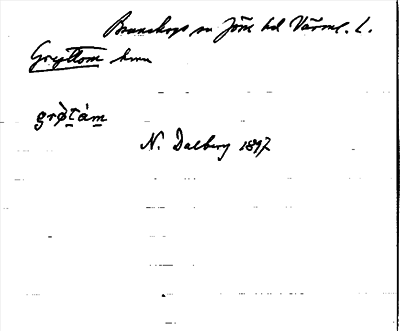 Brunskogs sn Jösse hd Värml. L.
Gryttom hmn
grø̀tàm
N. Dalberg 1897